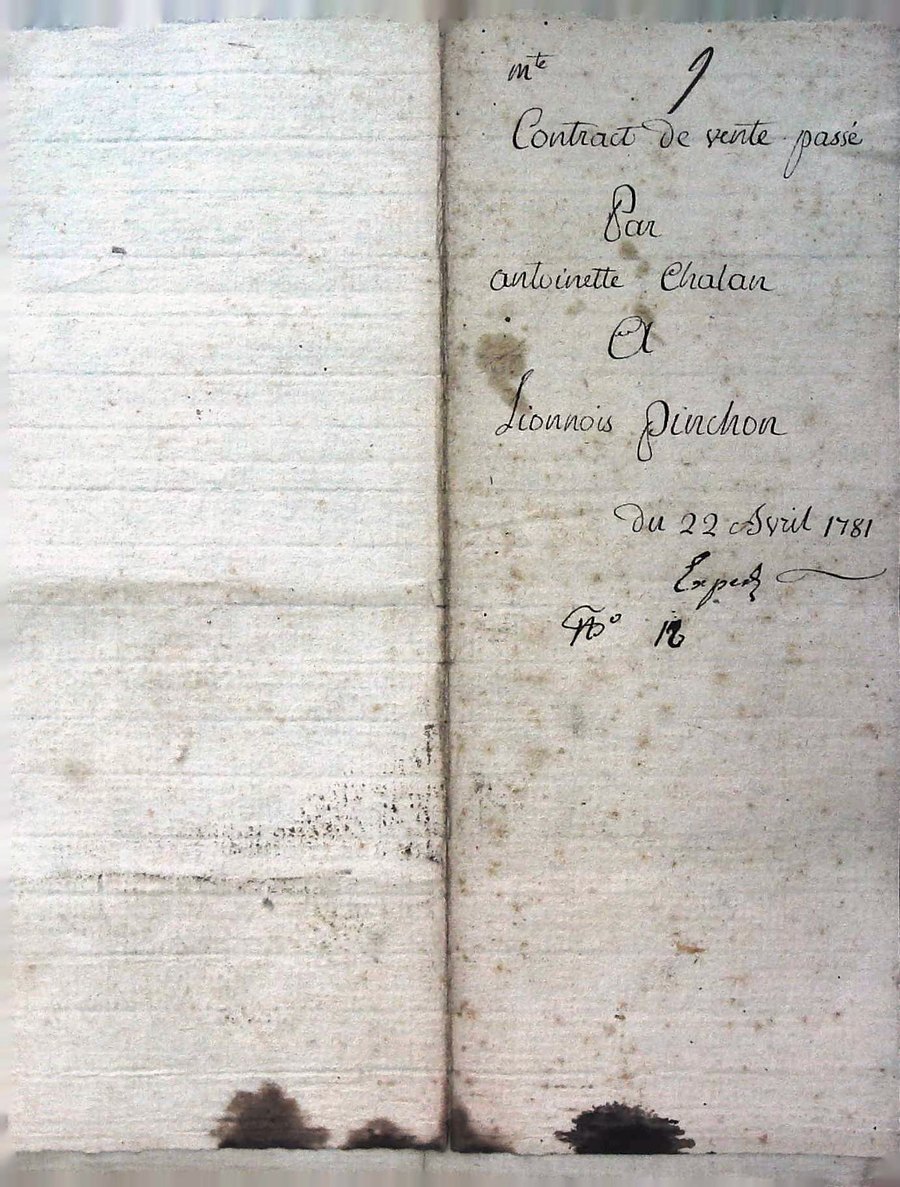 mte
Contract de vente passé
Par
antoinette Chalan
A
Lionnois pinchon
du 22 Avril 1781
No